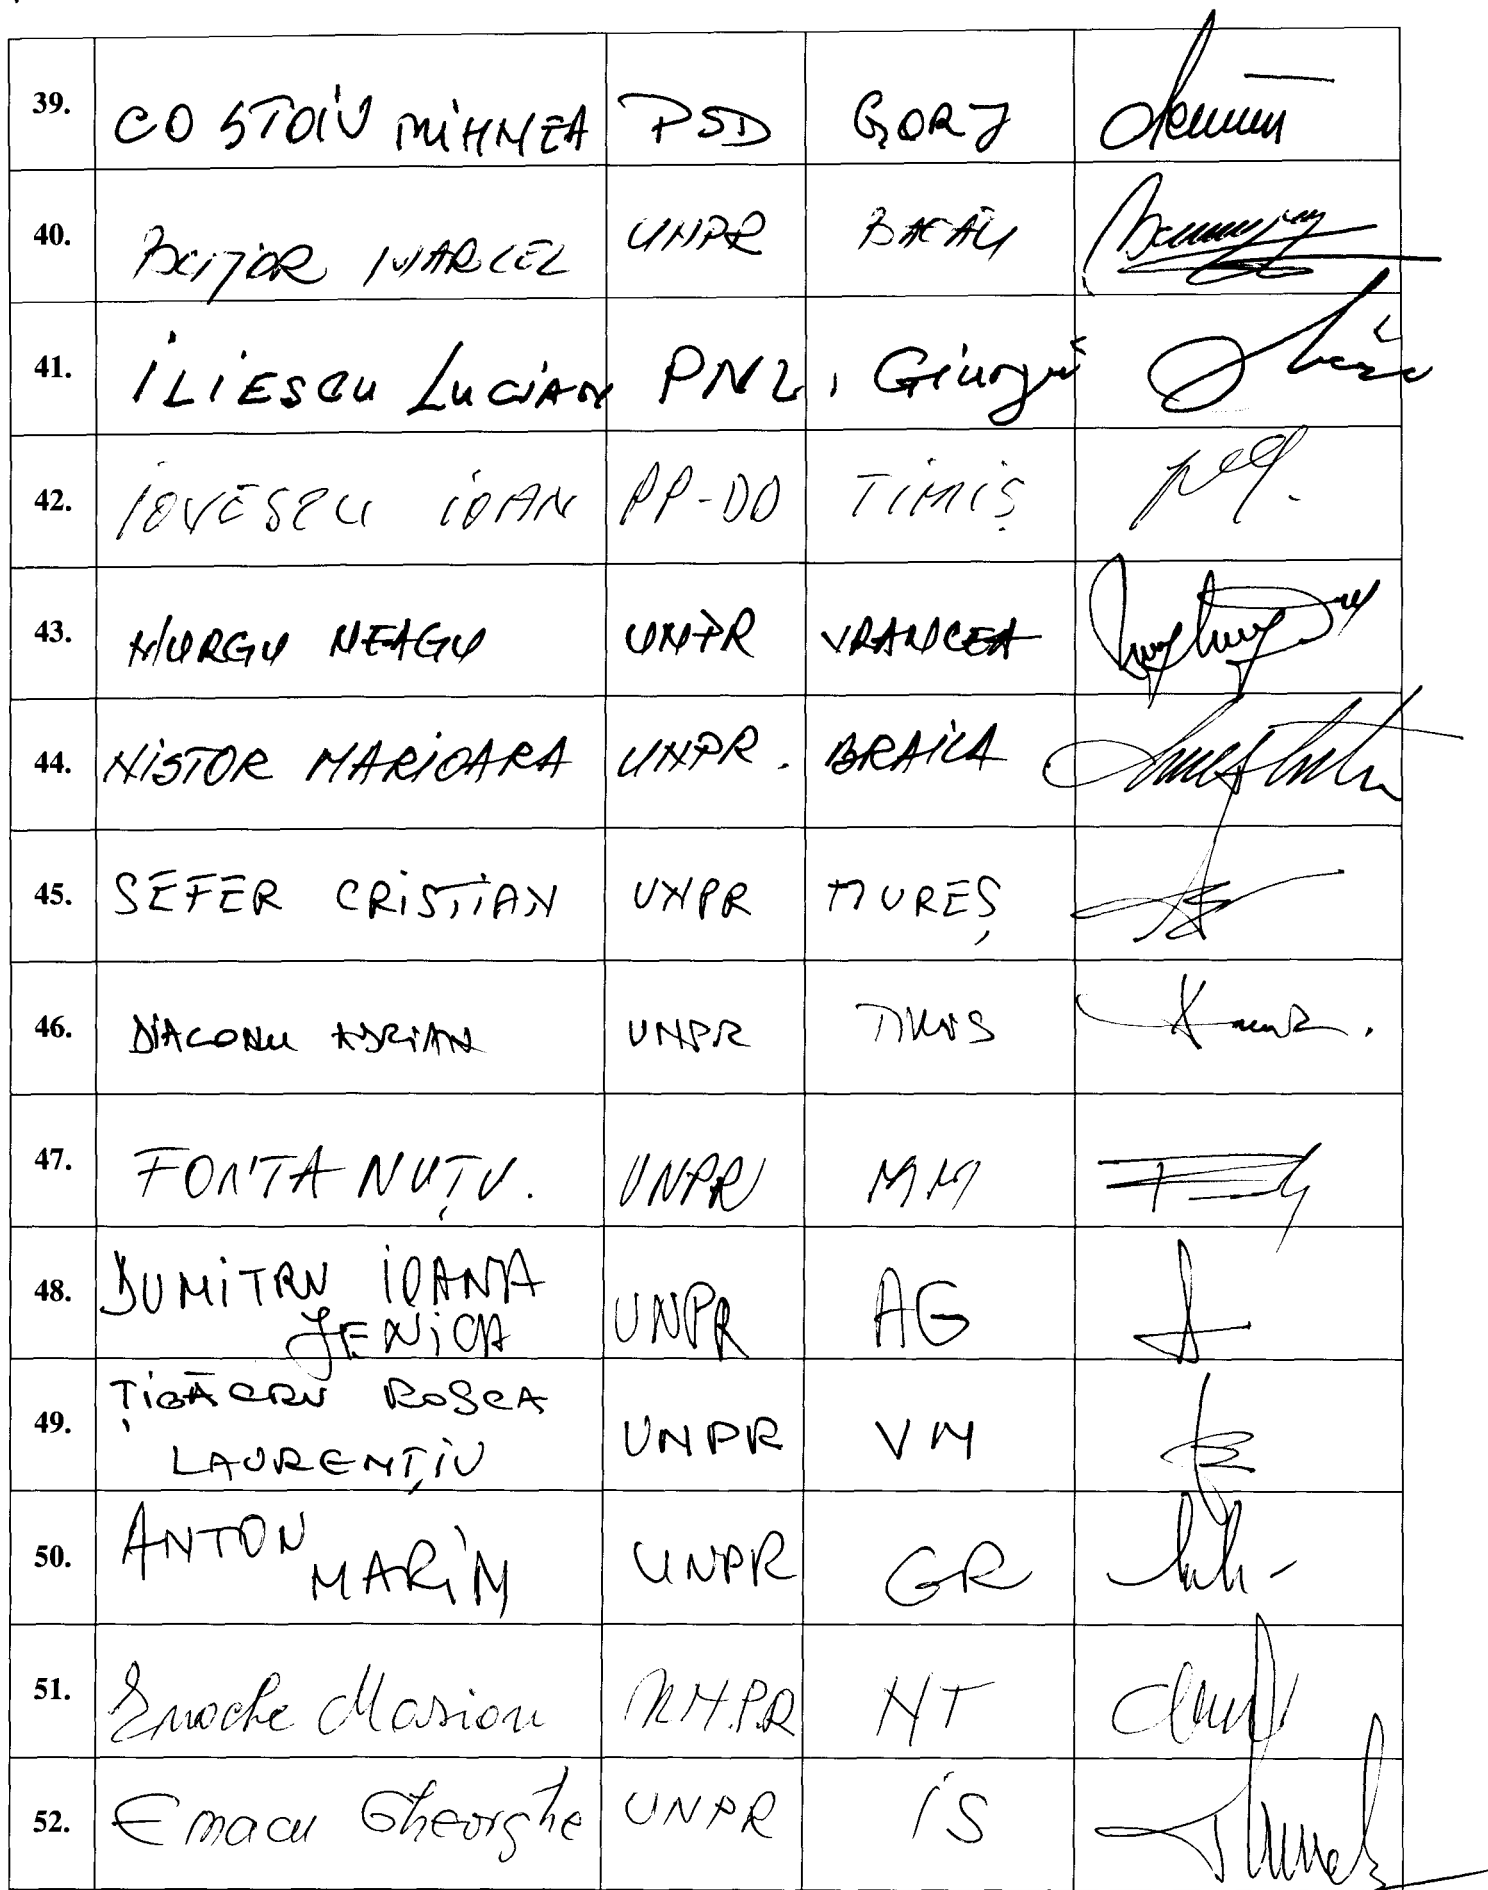 39. COSTOIU MIHNEA PSD GORJ
40. BUJOR MARCEL UNPR BACĂU
41. ILIESCU LUCIAN PNL, Giurgiu
42. IOVESCU IOAN PP-DD TIMIȘ
43. MURGU NEAGU UNPR VRANCEA
44. NISTOR MARIOARA UNPR. BRAILA
45. SEFER CRISTIAN UNPR MUREȘ
46. DIACONU ADRIAN UNPR TIMIS
47. FONTA NUȚU. UNPR MM
48. DUMITRU IOANA
JENICA UNPR AG
49. ROȘCA
LAURENȚIU UNPR
50. ANTON
MARIN UNPR GR
51. Enache Marian NT
52. Emacu Gheorghe UNPR IS